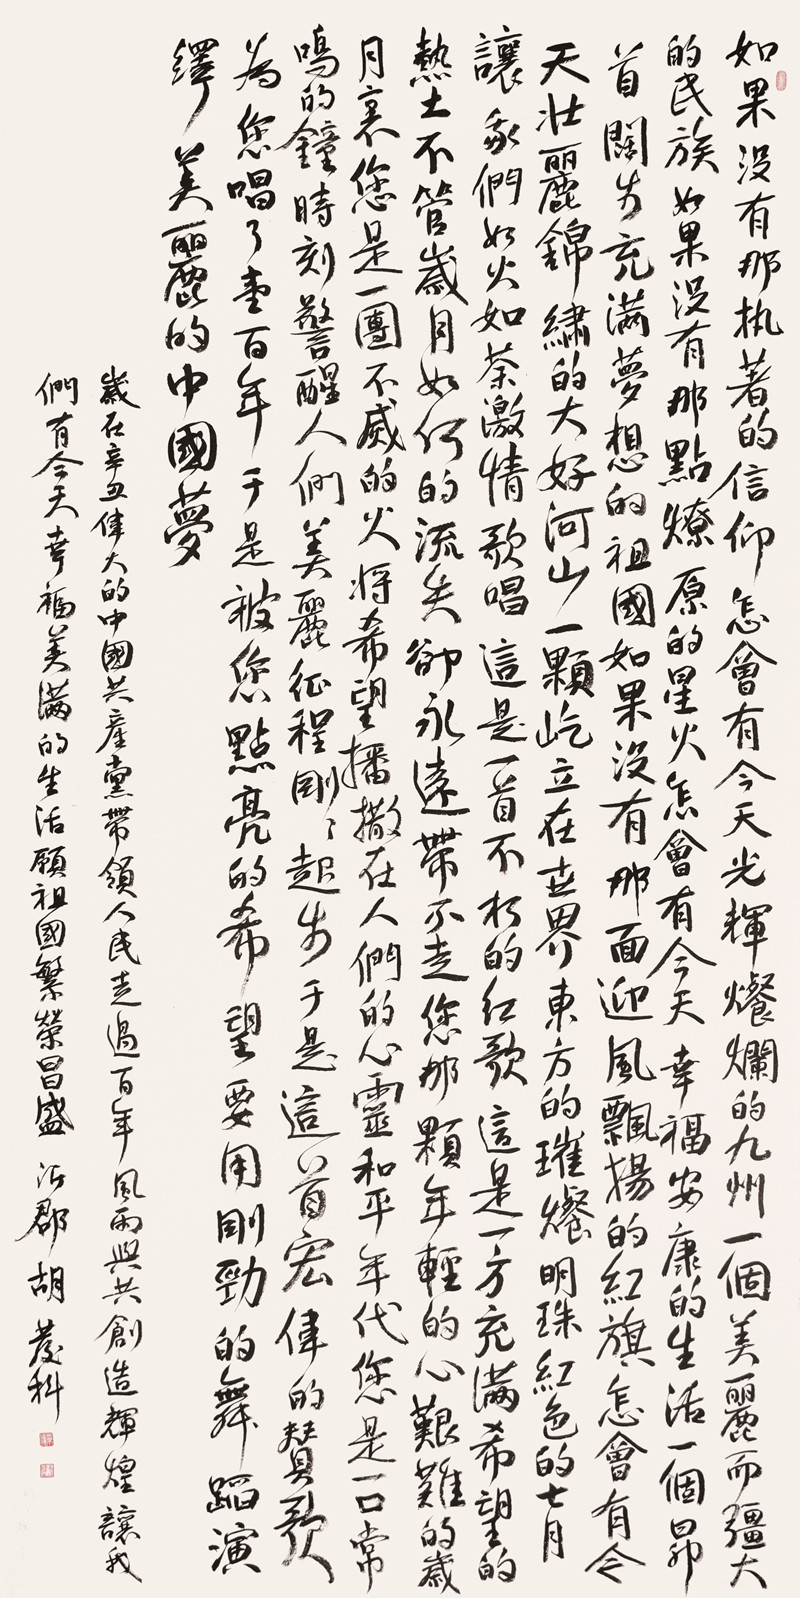 如果沒有那执著的信仰怎會有今天光輝燦爛的九州一個美麗而疆大
的民族如果沒有那點燎原的星火怎會有今天幸福安康的生活一個昂
首闊步充滿夢想的祖國如果沒有那面迎風飄揚的紅旗怎會有今
天壯麗錦繡的大好河山一顆屹立在世界東方的璀燦明珠紅色的七月
讓我們如火如荼激情歌唱這是一首不朽的红歌這是一方充滿希望的
熱土不管歲月如何的流失卻永遠帶不走您那顆年輕的心艱難的歲
月裏您是一團不威的火将希望播撒在人們的心靈和平年代您是一口常
鳴的鐘時刻警醒人們美麗征程剛剛起步于是這首宏偉的贊歌
為您唱了壹百年于是被您點亮的希望要用剛勁的舞蹈演
繹美麗的中國夢
歲在辛丑偉大的中國共產黨帶領人民走過百年風雨與共創造輝煌讓我
們有今天幸福美滿的生活願祖國繁榮昌盛 胡茂科